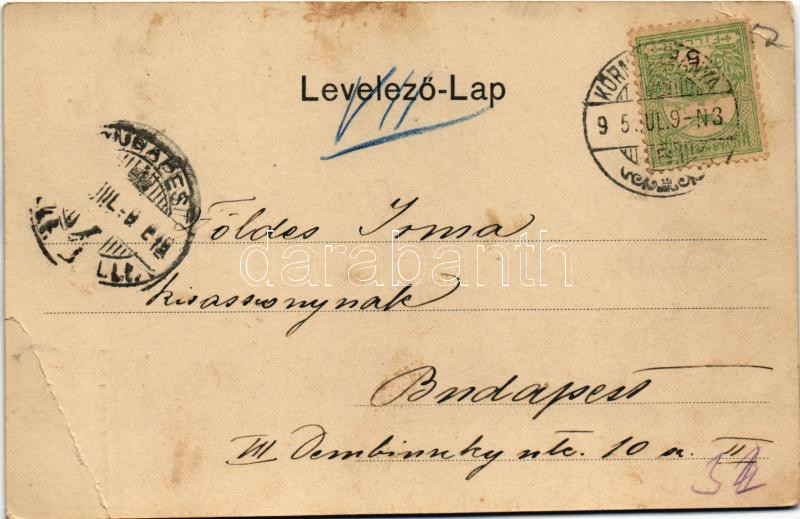 Levelező-Lap
VII
9 5 JUL. 9-N3
BUDAPEST
Földes Irma
kisasszonynak
darabanth
Budapest
VII Dembinszky utc. 10 sz. II